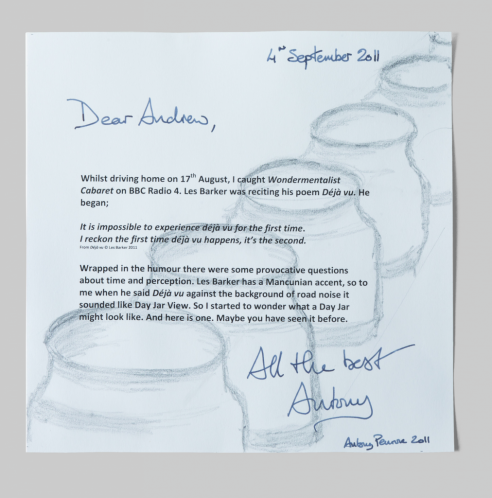 4th September 2011
Dear Andrew,
Whilst driving home on 17th August, I caught Wondermentalist
Cabaret on BBC Radio 4. Les Barker was reciting his poem Déjà vu. He
began;
It is impossible to experience déjà vu for the first time.
I reckon the first time déjà vu happens, it's the second.
From Déjà vu © Les Barker 2011
Wrapped in the humour there were some provocative questions
about time and perception. Les Barker has a Mancunian accent, so to
me when he said Déjà vu against the background of road noise it
sounded like Day Jar View. So I started to wonder what a Day Jar
might look like. And here is one. Maybe you have seen it before.
All the best
Antony
Antony Penrose 2011